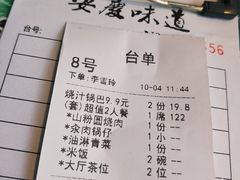 安庆味道
台号:
56
台单
8号
下单:李雪玲
10-04 11:44
烧汁锅巴9.9元 2份 19.8
(套)超值2人餐 1席 122
*山粉圆烧肉 1份 --
*汆肉锅仔 1份 --
*油淋青菜 1小 --
*米饭 2碗 --
*大厅茶位 2位 --